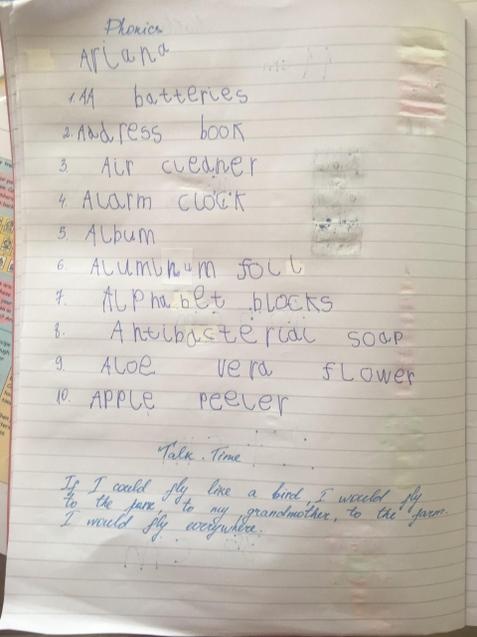 Phonics
Ariana
1. AA batteries
2. Address book
3. Air cleaner
4. Alarm clock
5. Album
6. Aluminum foil
7. Alphabet blocks
8. Antibacterial soap
9. Aloe vera flower
10. Apple peeler
Talk Time
If I could fly like a bird, I would fly
to the park, to my grandmother, to the farm.
I would fly everywhere.